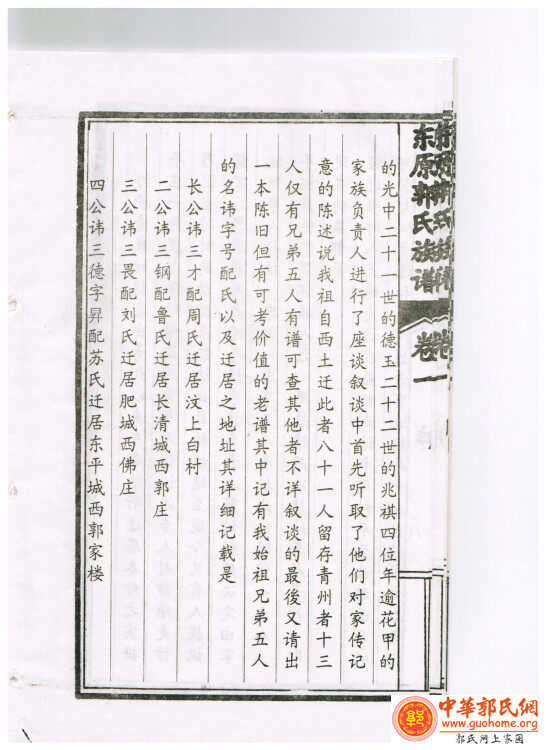 东原郭氏族谱 卷一
的光中二十一世的德玉二十二世的兆祺四位年逾花甲的
家族负责人进行了座谈叙谈中首先听取了他们对家传记
意的陈述说我祖自西土迁此者八十一人留存青州者十三
人仅有兄弟五人有谱可查其他者不详叙谈的最後又请出
一本陈旧但有可考价值的老谱其中记有我始祖兄弟五人
的名讳字号配氏以及迁居之地址其详细记载是
长公讳三才配周氏迁居汶上白村
二公讳三钢配鲁氏迁居长清城西郭庄
三公讳三畏配刘氏迁居肥城西佛庄
四公讳三德字昇配苏氏迁居东平城西郭家楼
中華郭氏網
www.guohome.org
郭氏网上家园